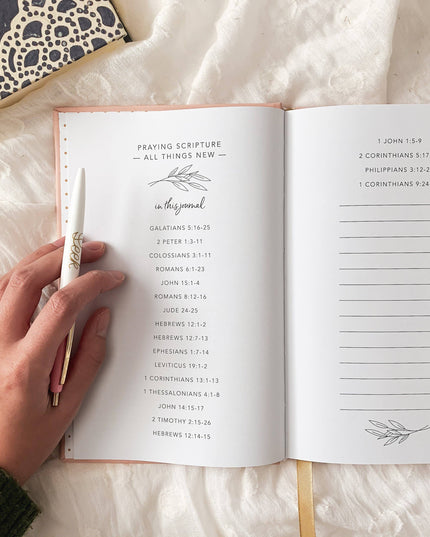 PRAYING SCRIPTURE
— ALL THINGS NEW —
in this journal
GALATIANS 5:16-25
2 PETER 1:3-11
COLOSSIANS 3:1-11
ROMANS 6:1-23
JOHN 15:1-4
ROMANS 8:12-16
JUDE 24-25
HEBREWS 12:1-2
HEBREWS 12:7-13
EPHESIANS 1:7-14
LEVITICUS 19:1-2
1 CORINTHIANS 13:1-13
1 THESSALONIANS 4:1-8
JOHN 14:15-17
2 TIMOTHY 2:15-26
HEBREWS 12:14-15
1 JOHN 1:5-9
2 CORINTHIANS 5:17
PHILIPPIANS 3:12-2
1 CORINTHIANS 9:24